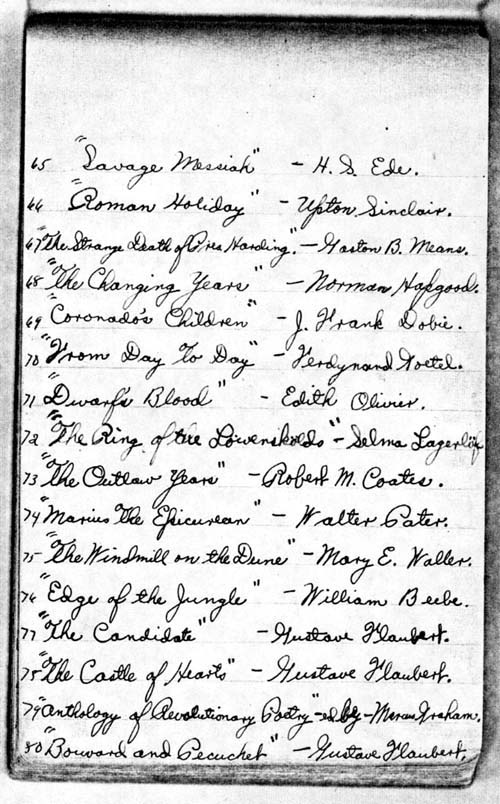 65 "Savage Messiah" - H. S. Ede.
66 "Roman Holiday" - Upton Sinclair.
67 "The Strange Death of Pres Harding." - Gaston B. Means.
68 "The Changing Years" - Norman Hapgood.
69 "Coronado's Children" - J. Frank Dobie.
70 "From Day To Day" - Ferdynand Goetel.
71 "Dwarf's Blood" - Edith Olivier.
72 "The Ring of the Löwenskolds" - Selma Lagerlöf
73 "The Outlaw Years" - Robert M. Coates.
74 "Marius The Epicurean" - Walter Pater.
75 "The Windmill on the Dune" - Mary E. Waller.
76 "Edge of the Jungle" - William Beebe.
77 "The Candidate" - Gustave Flaubert.
78 "The Castle of Hearts" - Gustave Flaubert.
79 "Anthology of Revolutionary Poetry" - ed by - Marcus Graham.
80 "Bouvard and Pecuchet" - Gustave Flaubert.